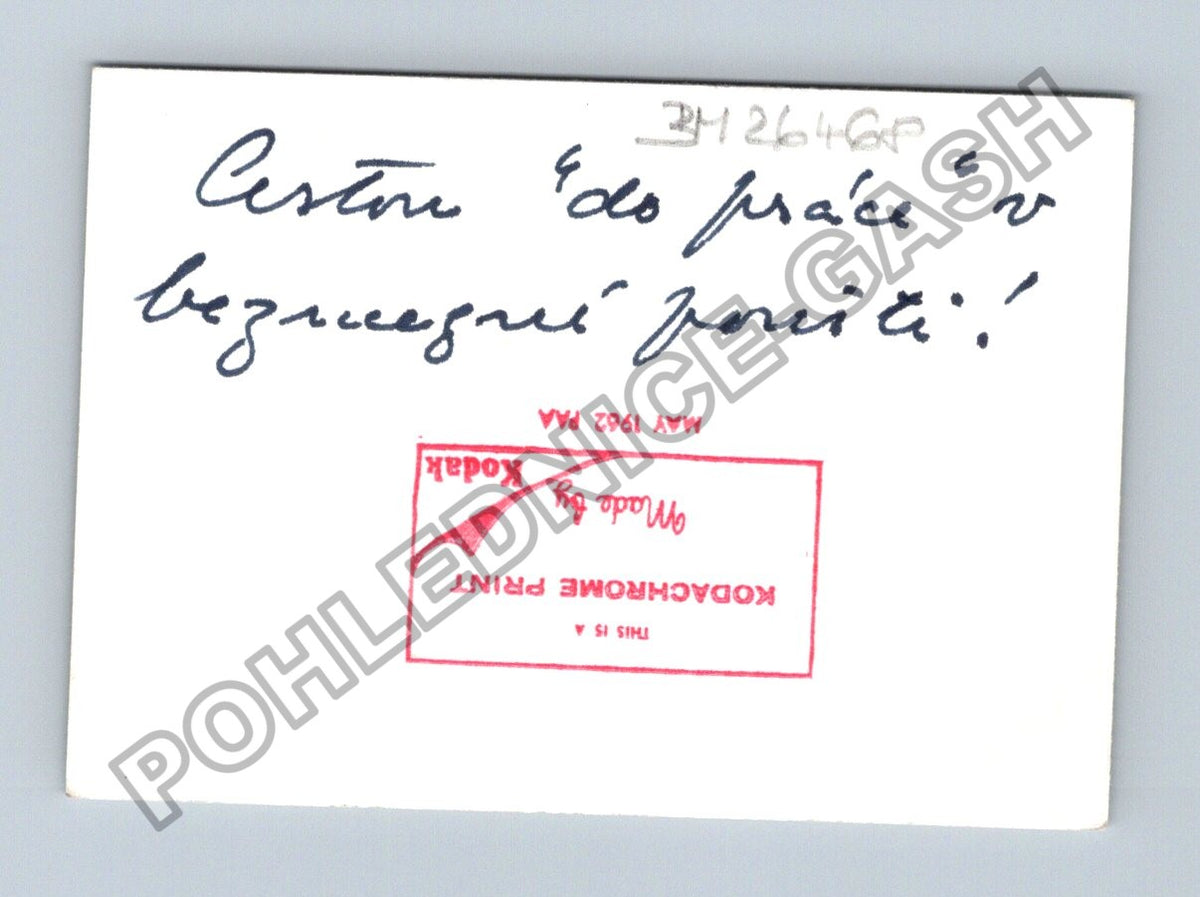 BH26468
Cestou "do práce" v
bezmezné poušti!
MAY 1962 PAA
Kodak
Made by
KODACHROME PRINT
THIS IS A
POHLEDNICE-GASH